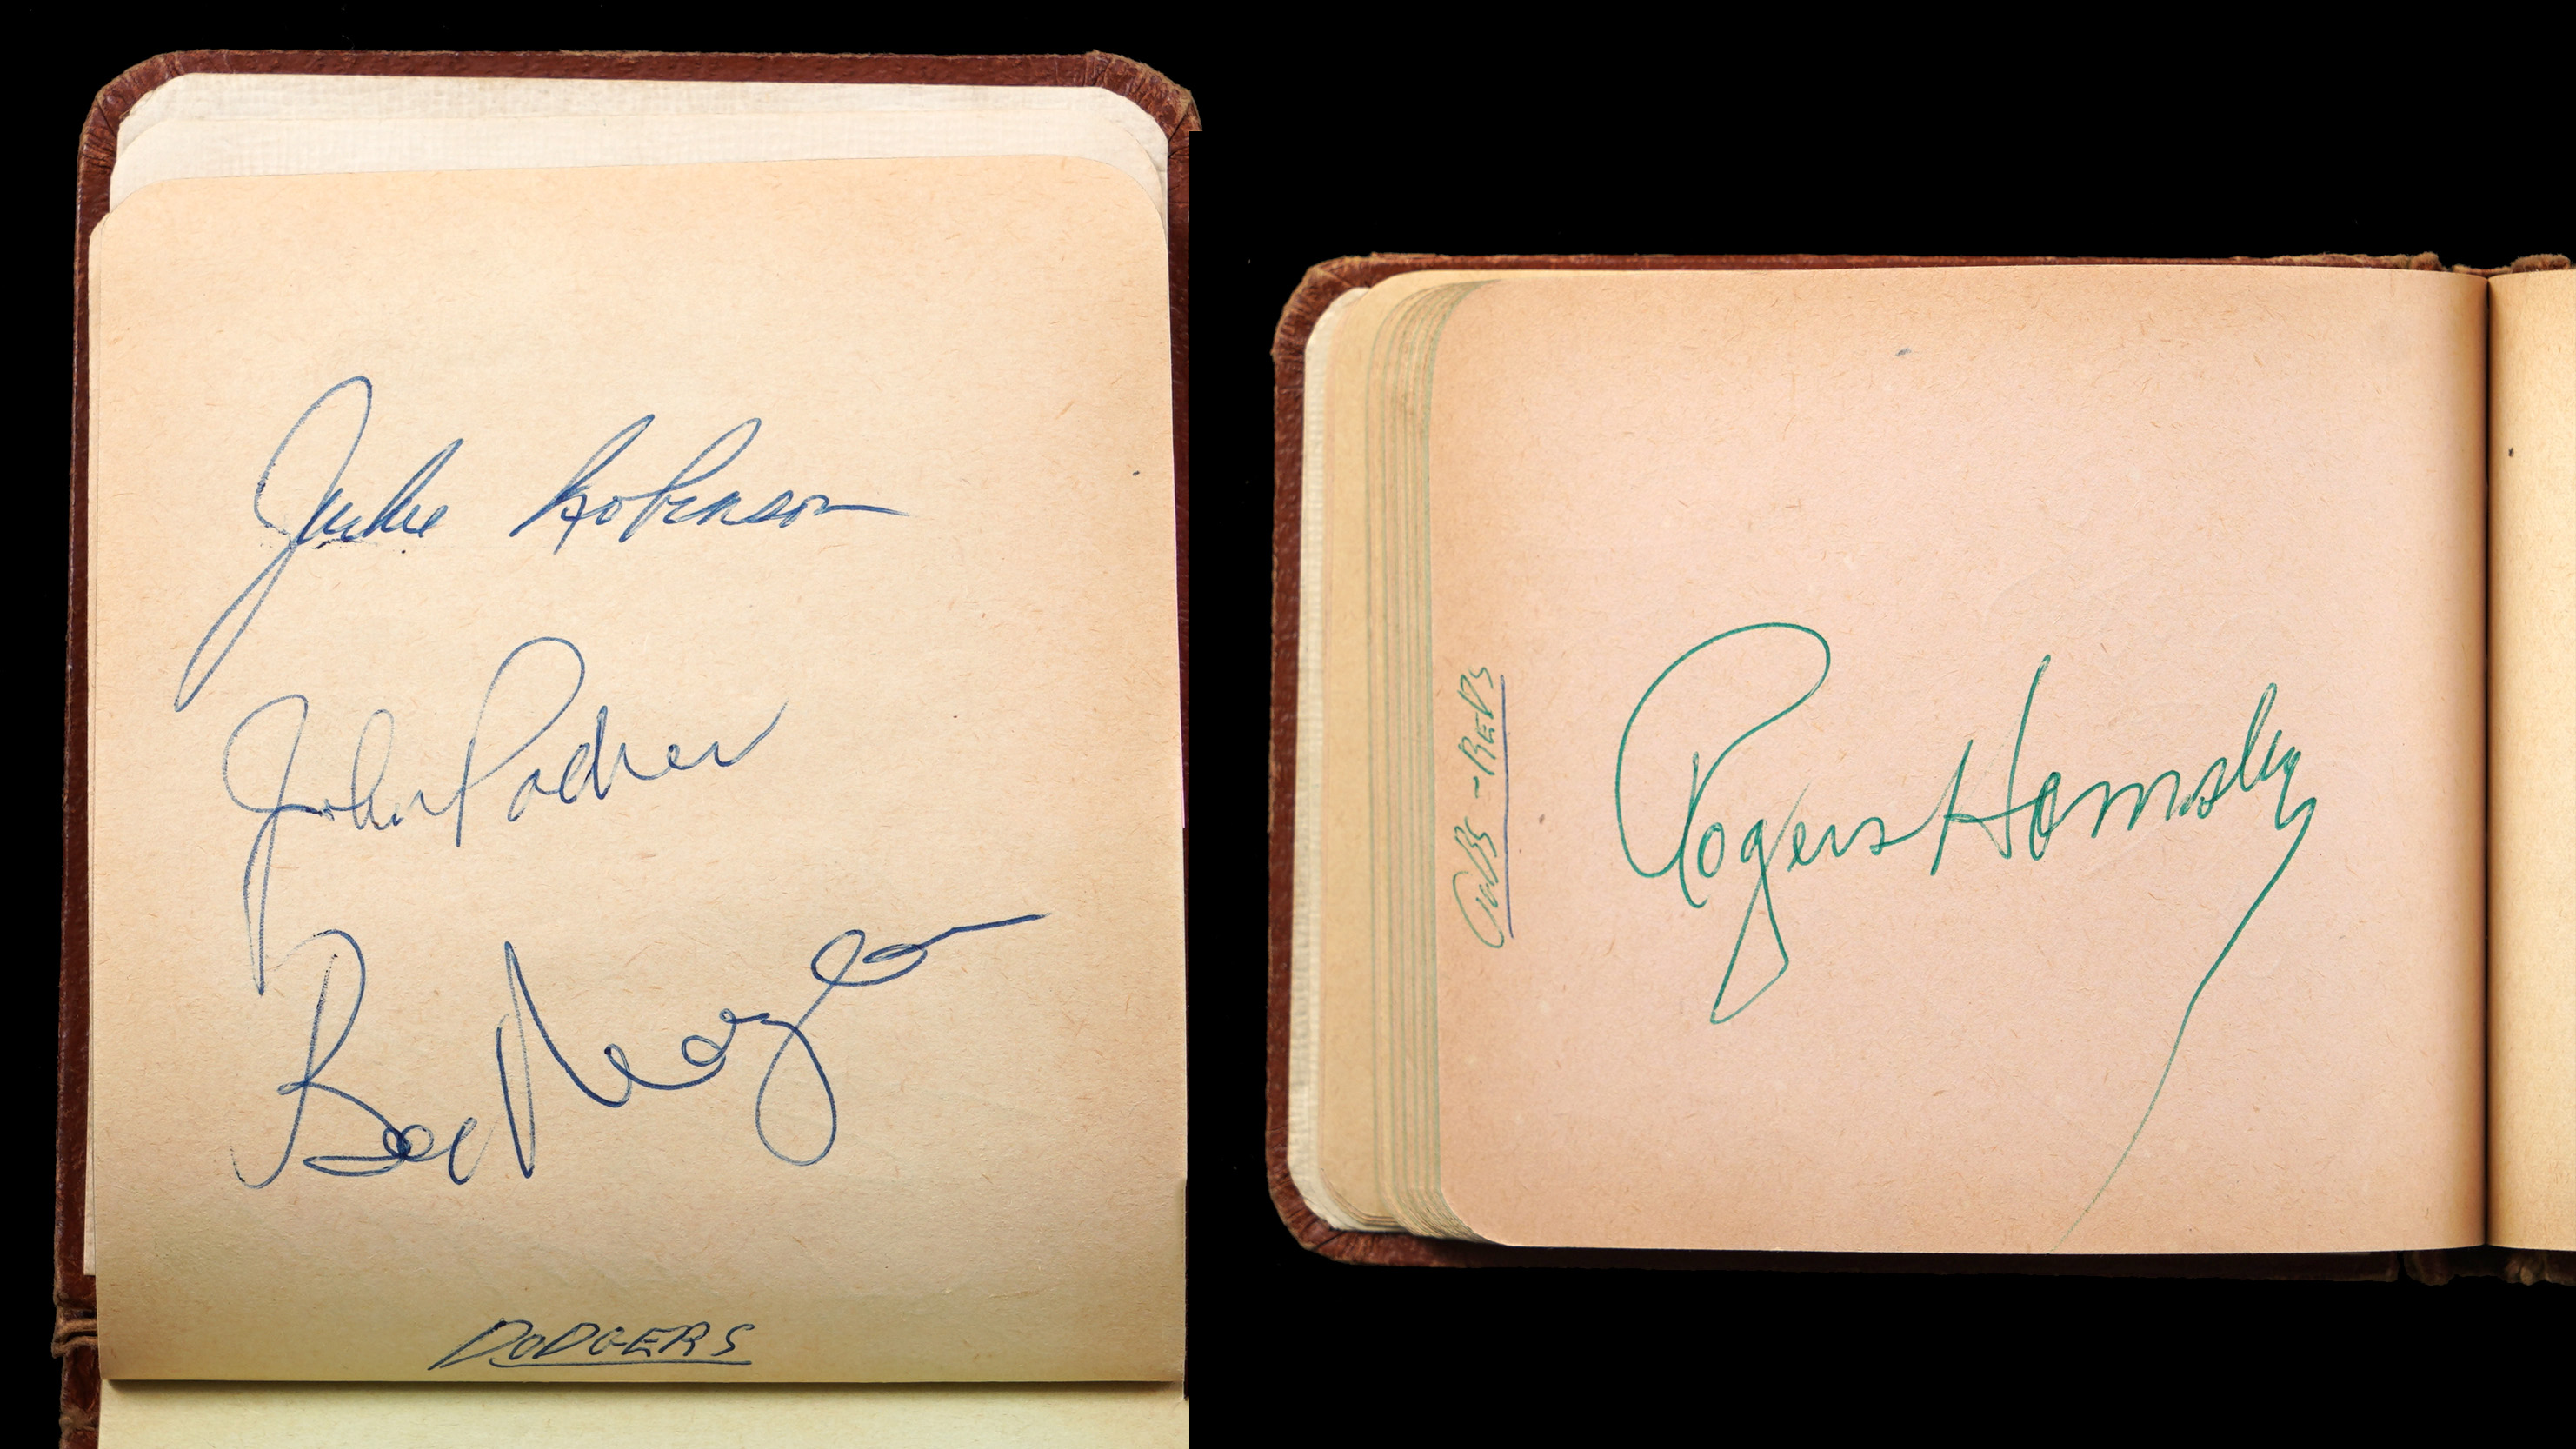 Jackie Robinson
John Podres
DODGERS
CUBS - REDS
Rogers Hornsby